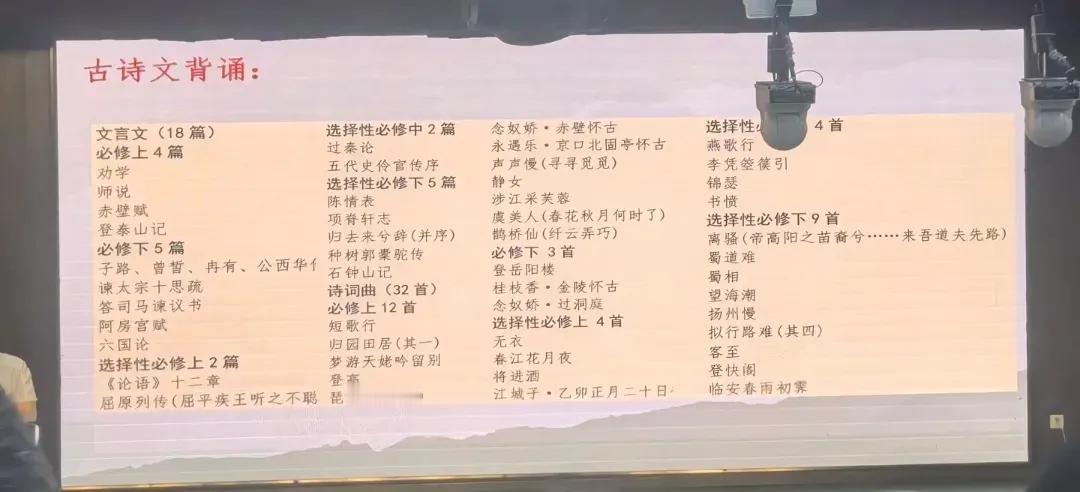 古诗文背诵：
文言文（18 篇）
必修上 4 篇
劝学
师说
赤壁赋
登泰山记
必修下 5 篇
子路、曾皙、冉有、公西华
谏太宗十思疏
答司马谏议书
阿房宫赋
六国论
选择性必修上 2 篇
《论语》十二章
屈原列传(屈平疾王听之不聪
选择性必修中 2 篇
过秦论
五代史伶官传序
选择性必修下 5 篇
陈情表
项脊轩志
归去来兮辞(并序)
种树郭橐驼传
石钟山记
诗词曲（32 首）
必修上 12 首
短歌行
归园田居(其一)
梦游天姥吟留别
登高
琵
念奴娇·赤壁怀古
永遇乐·京口北固亭怀古
声声慢(寻寻觅觅)
静女
涉江采芙蓉
虞美人(春花秋月何时了)
鹊桥仙(纤云弄巧)
必修下 3 首
登岳阳楼
桂枝香·金陵怀古
念奴娇·过洞庭
选择性必修上 4 首
无衣
春江花月夜
将进酒
江城子·乙卯正月二十日
选择性必 4 首
燕歌行
李凭箜篌引
锦瑟
书愤
选择性必修下 9 首
离骚(帝高阳之苗裔兮……来吾道夫先路)
蜀道难
蜀相
望海潮
扬州慢
拟行路难(其四)
客至
登快阁
临安春雨初霁